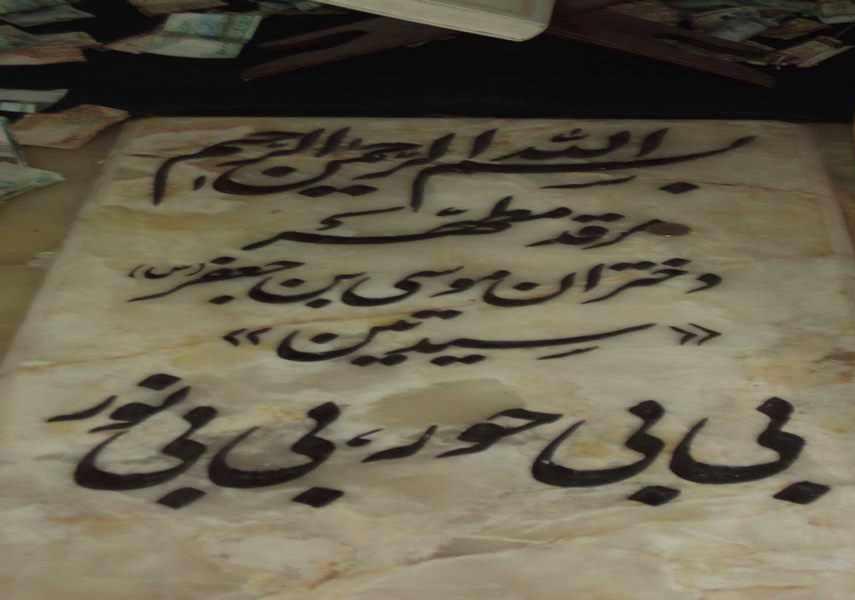 بسم الله الرحمن الرحیم
مرقد مطهر
دختران موسی بن جعفر (س)
«سیدتین»
بی بی حور، بی بی نور